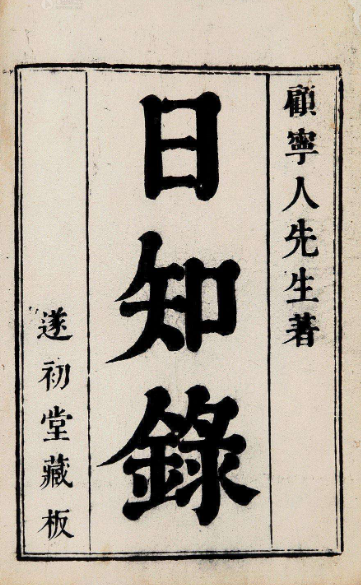 顧寧人先生著
日知錄
遂初堂藏板